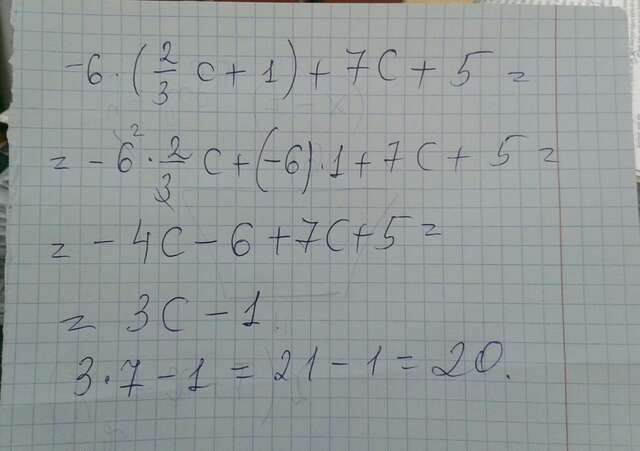 -6 · (2/3 c + 1) + 7c + 5 =
= -6² · 2/3 c + (-6) · 1 + 7c + 5 =
= -4c - 6 + 7c + 5 =
= 3c - 1
3 · 7 - 1 = 21 - 1 = 20.